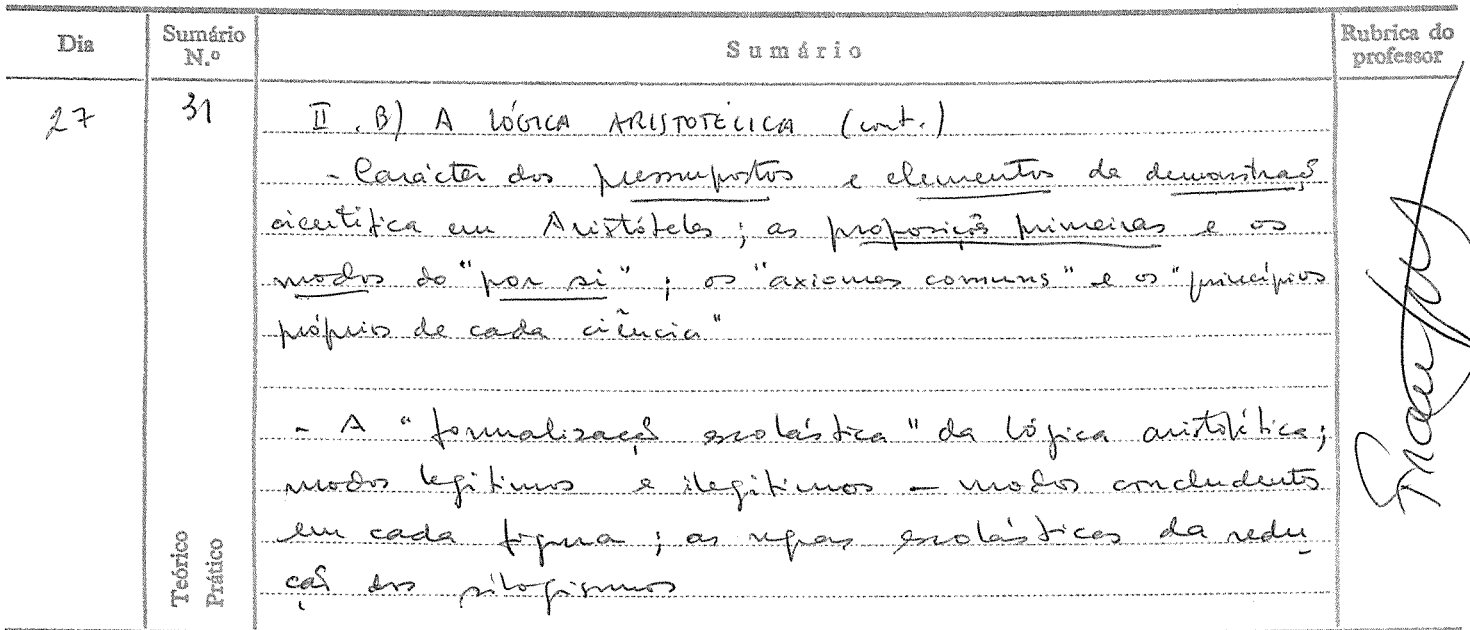 Dia Sumário N.º Sumário Rubrica do professor
27 31 II. B) A LÓGICA ARISTOTÉLICA (cont.)
- Carácter dos pressupostos e elementos da demonstração
científica em Aristóteles; as proposições primeiras e os
modos do "por si"; os "axiomas comuns" e os "princípios
próprios de cada ciência"
- A "formalização escolástica" da lógica aristotélica;
modos legítimos e ilegítimos — modos concludentes
em cada figura; as regras escolásticas da redu
ção dos silogismos
Teórico
Prático